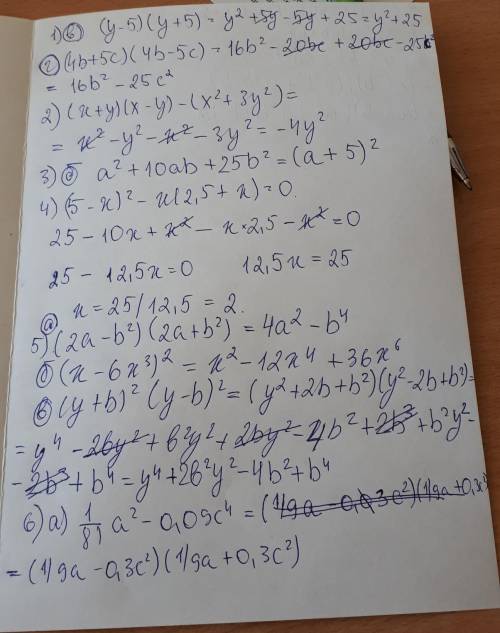 1) в) (y-5)(y+5) = y² + 5y - 5y + 25 = y² + 25
2) (4b+5c)(4b-5c) = 16b² - 20bc + 20bc - 25c²
= 16b² - 25c²
2) (x+y)(x-y) - (x² + 3y²) =
= x² - y² - x² - 3y² = -4y²
3) б) a² + 10ab + 25b² = (a + 5)²
4) (5 - x)² - x(2,5 + x) = 0.
25 - 10x + x² - x × 2,5 - x² = 0
25 - 12,5x = 0 12,5x = 25
x = 25/12,5 = 2.
а)
5) (2a - b²)(2a + b²) = 4a² - b⁴
б) (x - 6x³)² = x² - 12x⁴ + 36x⁶
в) (y + b)² (y - b)² = (y² + 2b + b²)(y² - 2b + b²) =
= y⁴ - 2by² + b²y² + 2by² - 4b² + 2b³ + b²y² -
- 2b³ + b⁴ = y⁴ + 2b²y² - 4b² + b⁴
6) a) 1/81 a² - 0,09c⁴ = (1/9a - 0,03c²)(1/9a + 0,3c²)
= (1/9a - 0,3c²)(1/9a + 0,3c²)